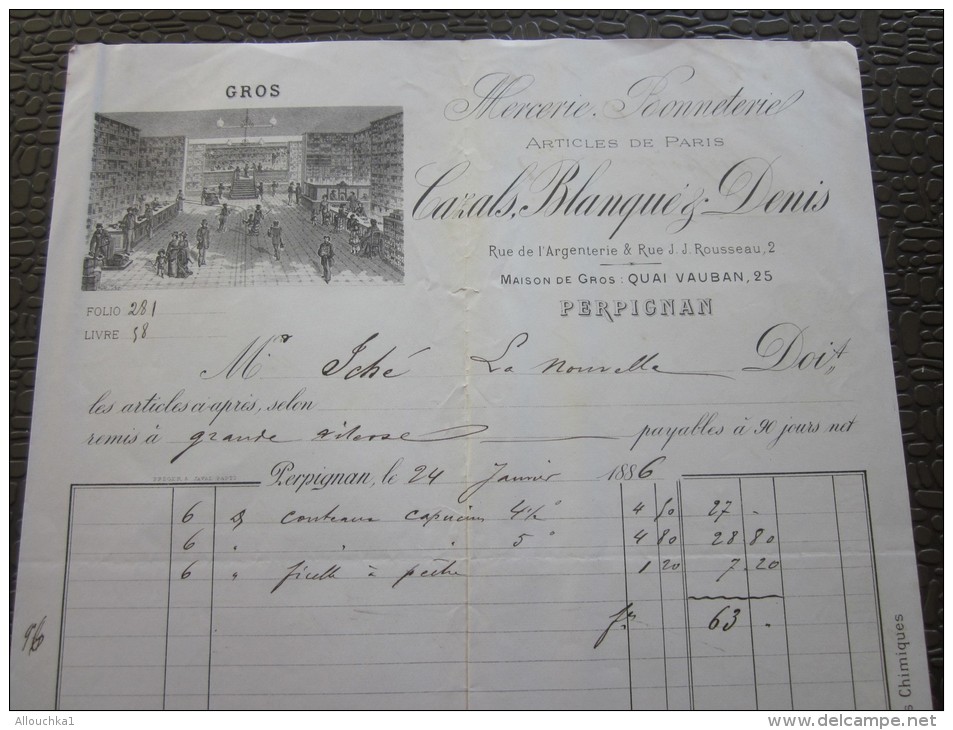 GROS
Mercerie. Bonneterie
ARTICLES DE PARIS
Cazals, Blanqué & Denis
Rue de l'Argenterie & Rue J. J. Rousseau, 2
MAISON DE GROS : QUAI VAUBAN, 25
PERPIGNAN
FOLIO 281
LIVRE 58
Mr Iché La Nouvelle Doit
les articles ci-après, selon
remis à grande vitesse payables à 90 jours net
Perpignan, le 24 Janvier 1886
6 Dz couteaux capucins 4½ ° 4 50 27 -
6 " " " 5 ° 4 80 28 80
6 " ficelle à 1 20 7.20
frs 63 -
s Chimiques
Allouchka1
www.delcampe.net